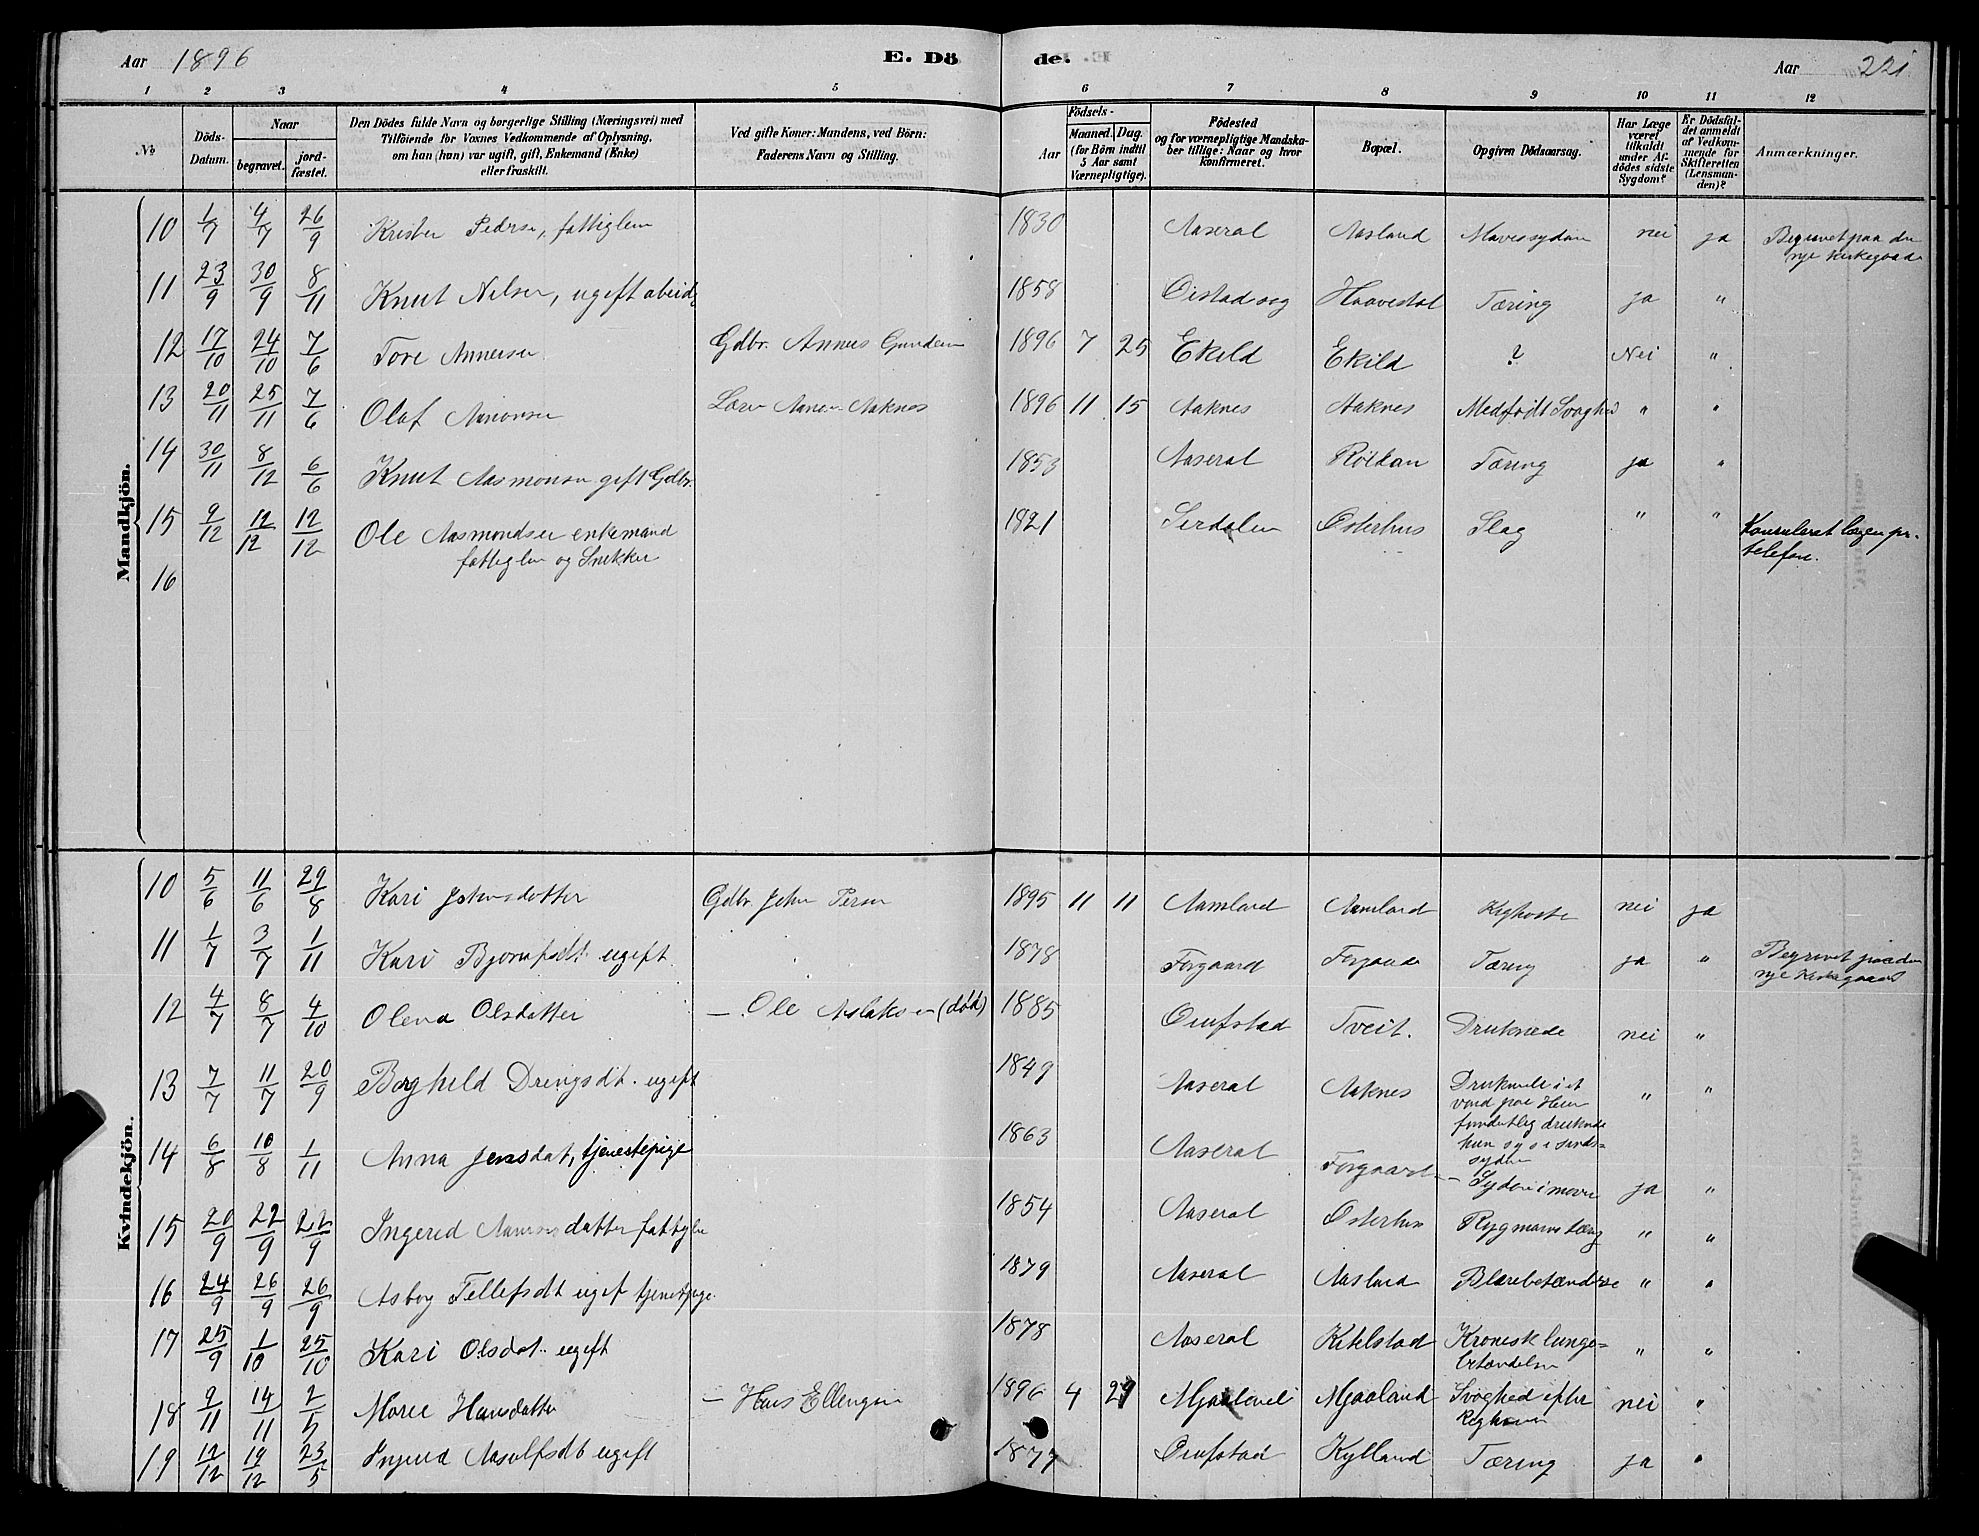 Aar 1896 E. Dö de. Aar 221
1 2 3 4 5 6 7 8 9 10 11 12
No
Döds-Datum.
Naar
begravet.
jord-fæstet.
Den Dödes fulde Navn og borgerlige Stilling (Næringsvei) med
Tilföiende for Voxnes Vedkommende af Oplysning,
om han (hun) var ugift, gift, Enkemand (Enke)
eller fraskilt.
Ved gifte Koner: Mandens, ved Börn:
Faderens Navn og Stilling.
Födsels-
Aar
Maaned. Dag.
(for Börn indtil
5 Aar samt
Værnepligtige).
Födested
og for værnepligtige Mandska-
ber tillige: Naar og hvor
konfirmeret.
Bopæl.
Opgiven Dödsaarsag.
Har Læge
været
tilkaldt
under Af-
dödes sidste
Sygdom?
Er Dödsfal-
det anmeldt
af Vedkom-
mende for
Skifteretten
(Lensman-
den)?
Anmærkninger.
Mandkjön.
10 1/7 4/7 26/9 Krister Pederse, fattiglem 1830 Aaseral Aasland Mavesygdom nei ja Begravet paa den
nye Kirkegaard
11 23/9 30/9 8/11 Knut Nilsen, ugift abeid 1858 Haavestol Tæring ja "
12 17/10 24/10 7/6 Tore Annersen Gdbr. Annes Gundersen 1896 7 25 Ekild Ekild ? Nei "
13 20/11 25/11 7/6 Olaf Aanonsen Aaknes 1896 11 15 Aaknes Aaknes Medfødt Svaghed " "
14 30/11 8/12 6/6 Knut Aasmonsen gift Gdbr. 1853 Aaseral Røilдan Tæring ja "
15 9/12 12/12 12/12 Ole Aasmondsen enkemand 1821 Sirdalen Østerhus Slag " " Konsuleret lægen pr.
fattiglem og Snekker telefon.
16
Kvindekjön.
10 5/6 11/6 29/8 Kari Johnsdatter Gdbr. John Persen 1895 11 11 Aamland Aamland Kighoste nei ja
11 1/7 3/7 1/11 Kari Bjorulfsdt. ugift 1878 Forgaard Forgaard Tæring ja " Begravet paa den
nye Kirkegaard
12 4/7 8/7 4/10 Olena Olsdatter — Ole Aslaksen (død) 1885 Oufstad Tveit. Druknede nei "
13 7/7 11/7 20/9 Borghild Drengsdt. ugift 1849 Aaseral Aaknes Druknede i et
vand paa Heien
fundet druknede
hun sinds-
sygdom " "
14 6/8 10/8 1/11 Anna Jensdat, tjenestepige 1863 Aaseral Forgaard — Sygdom i maven ja "
15 20/9 22/9 22/9 Ingerid datter fattiglem 1854 Aaseral Østerhus Rygmarvstæring " "
16 24/9 26/9 26/9 Asbor Tellefsdt ugif tjenestpige. 1879 Aaseral Aasland Blærebetændelse " "
17 25/9 1/10 25/10 Kari Olsdat. ugift 1878 Aaseral Kitelstad Kronisk lunge-
betændelse " "
18 9/11 14/11 2/5 Marie Hansdatter — Hans Ellengsen 1896 4 29 Mjaaland Mjaaland Svaghed efter
Kighosten nei "
19 12/12 19/12 23/5 Ingerid Aasulfsdt ugift 1877 Oufstad Kylland Tæring ja "